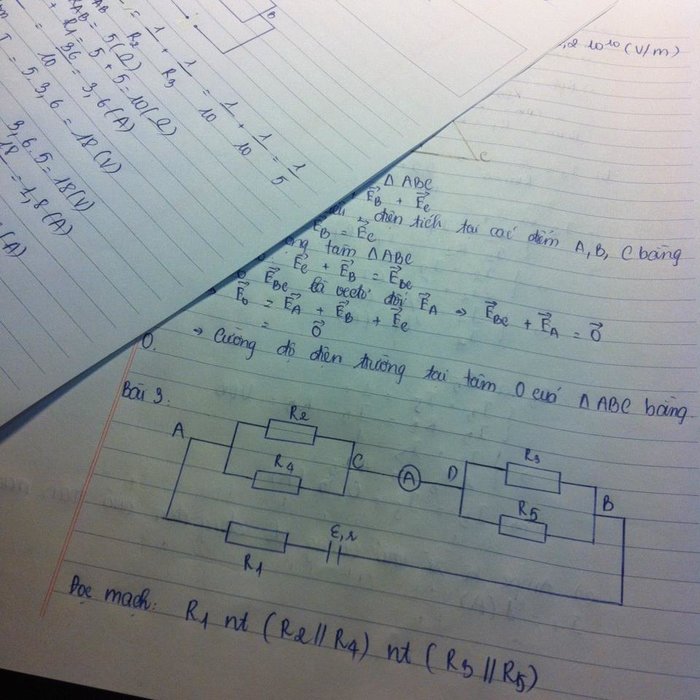 1/R2 + 1/R3 = 1/10 + 1/10 = 1/5
RAB = 5(Ω)
R1 + = 5 + 5 = 10(Ω)
= 36/10 = 3,6(A)
I = 5.3,6 = 18(V)
3,6.5 = 18(V)
18 = 1,8(A)
(A)
B
10¹⁰ (V/m)
C
Δ ABC
+ E⃗B + E⃗C
điện tích tại các điểm A, B, C bằng
E⃗B = E⃗C
tâm Δ ABC
E⃗C + E⃗B = E⃗BC
E⃗BC là vectơ đối E⃗A → E⃗BC + E⃗A = 0⃗
→ E⃗0 = E⃗A + E⃗B + E⃗C
= 0⃗
→ Cường độ điện trường tại tâm O của Δ ABC bằng
0.
Bài 3.
A
R2
R4
C
A
D
R3
R5
B
R1
ε,r
Đọc mạch: R1 nt (R2 // R4) nt (R3 // R5)